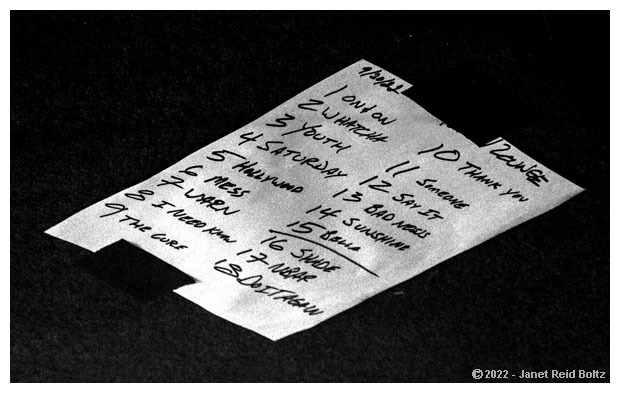 9/20/22
LOUNGE
1 ON AND ON
2 WHATCHA
3 YOUTH
4 SATURDAY
5 HOLLYWOOD
6 MESS
7 WARN
8 I NEED KNOW
9 THE CURE
10 THANK YOU
11 SOMEONE
12 SAY IT
13 BAD NEWS
14 SUNSHINE
15 BELLA
16 SHADE
17 NEAR
18 DO IT AGAIN
© 2022 - Janet Reid Boltz